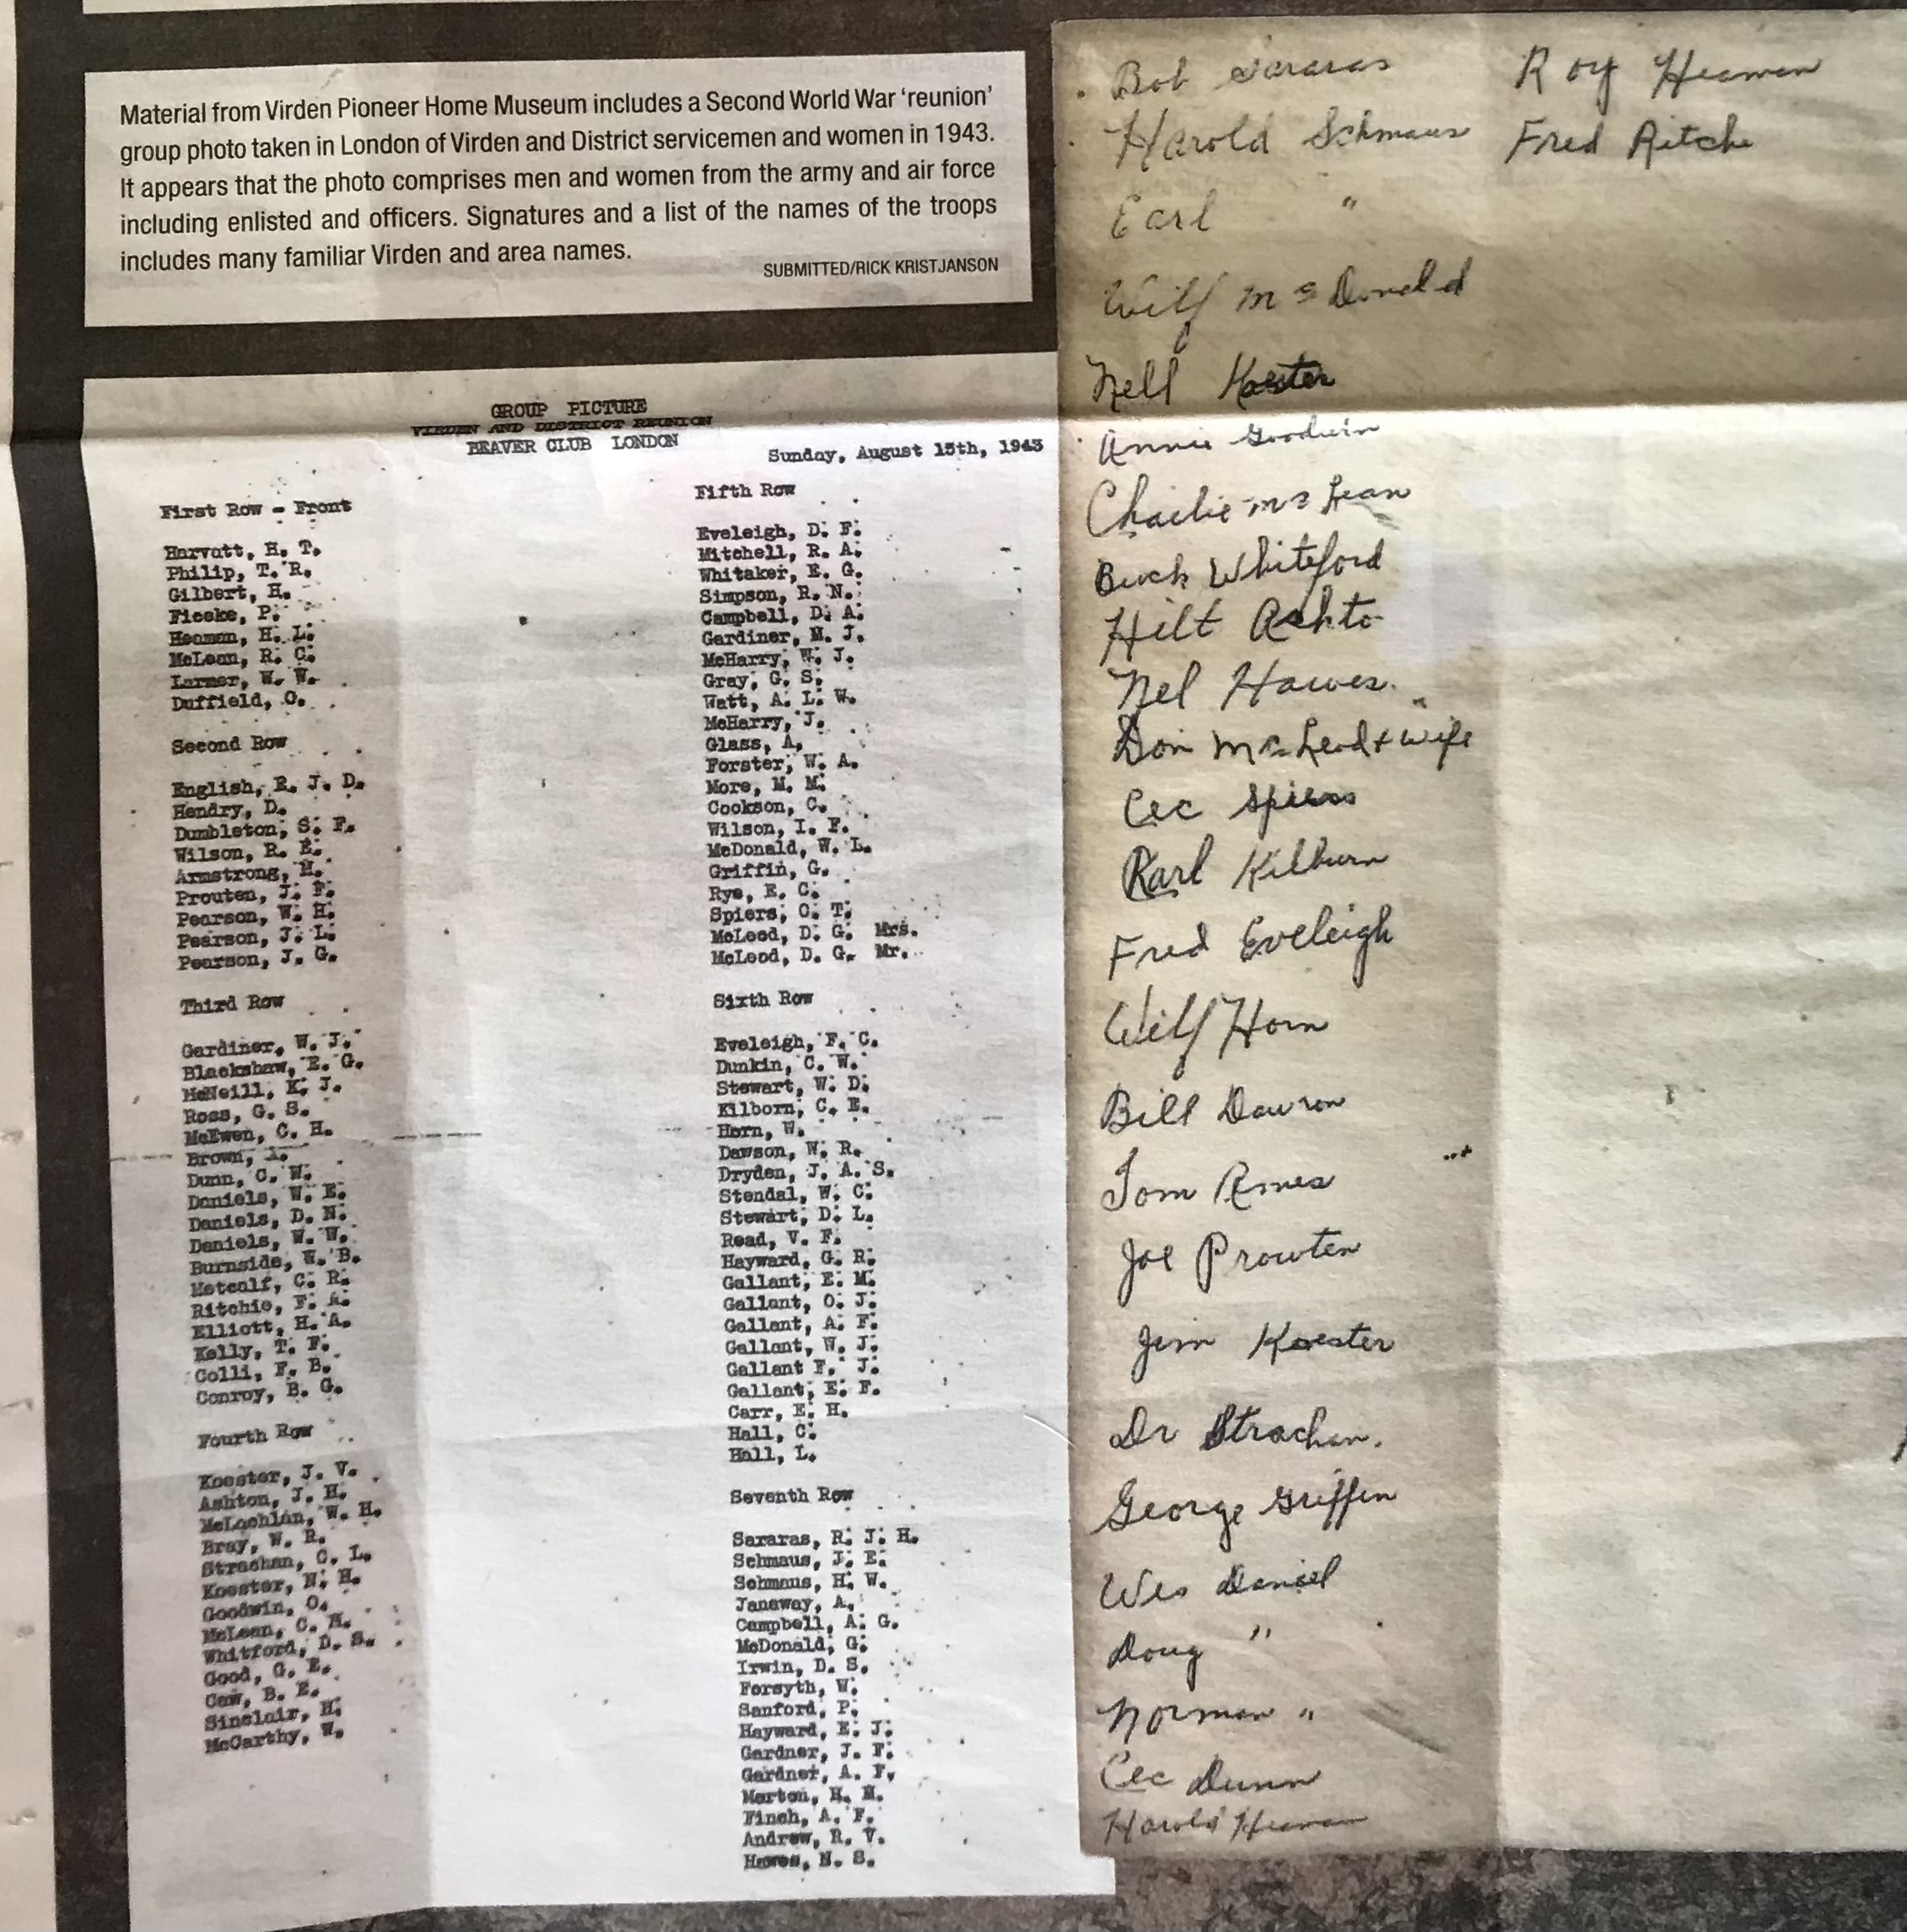 Material from Virden Pioneer Home Museum includes a Second World War ‘reunion’
group photo taken in London of Virden and District servicemen and women in 1943.
It appears that the photo comprises men and women from the army and air force
including enlisted and officers. Signatures and a list of the names of the troops
includes many familiar Virden and area names.
SUBMITTED/RICK KRISTJANSON
GROUP PICTURE
VIRDEN AND DISTRICT REUNION
BEAVER CLUB LONDON
Sunday, August 15th, 1943
First Row - Front
Harvatt, H. T.
Philip, T. R.
Gilbert, H.
Fieske, P.
Heaman, H. L.
McLean, R. C.
Larmer, W. W.
Duffield, O.
Second Row
English, E. J. D.
Hendry, D.
Dumbleton, S. F.
Wilson, R. E.
Armstrong, H.
Prouten, J. F.
Pearson, W. H.
Pearson, J. L.
Pearson, J. G.
Third Row
Gardiner, W. J.
Blackshaw, E. G.
McNeill, K. J.
Ross, G. S.
McEwen, C. H.
Brown,
Dunn, C. W.
Daniels, W. E.
Daniels, D. N.
Daniels, W. W.
Burnside, W. B.
Metcalf, C. R.
Ritchie, F. A.
Elliott, H. A.
Kelly, T. F.
Colli, F. B.
Conroy, B. G.
Fourth Row
Koester, J. V.
Ashton, J. H.
McLachlan, W. H.
Bray, W. R.
Strachan, C. L.
Koester, N. H.
Goodwin, O.
McLean, C. M.
Whitford, D. S.
Good, G. E.
Caw, B. E.
Sinclair, H.
McCarthy, W.
Fifth Row
Eveleigh, D. F.
Mitchell, R. A.
Whitaker, E. G.
Simpson, R. N.
Campbell, D. A.
Gardiner, M. J.
McHarry, W. J.
Gray, G. S.
Watt, A. L. W.
McHarry, J.
Glass, A.
Forster, W. A.
More, M. M.
Cookson, C.
Wilson, I. F.
McDonald, W. L.
Griffin, G.
Rye, E. C.
Spiers, C. T.
McLeod, D. G. Mrs.
McLeod, D. G. Mr.
Sixth Row
Eveleigh, F. C.
Dunkin, C. W.
Stewart, W. D.
Kilborn, C. E.
Horn, W.
Dawson, W. R.
Dryden, J. A. S.
Stendal, W. C.
Stewart, D. L.
Read, V. F.
Hayward, G. R.
Gallant, E. M.
Gallant, O. J.
Gallant, A. F.
Gallant, W. J.
Gallant F. J.
Gallant, E. F.
Carr, E. H.
Hall, C.
Hall, L.
Seventh Row
Sararas, R. J. H.
Schmaus, J. E.
Schmaus, H. W.
Janaway, A.
Campbell, A. G.
McDonald, G.
Irwin, D. S.
Forsyth, W.
Sanford, P.
Hayward, E. J.
Gardner, J. F.
Gardner, A. F.
Merton, H. M.
Finch, A. F.
Andrew, R. V.
Hawes, N. S.
Bob Sararas
Harold Schmaus
Earl "
Wilf McDonald
Nell Koester
Annie Goodwin
Charlie McLean
Buck Whiteford
Hilt Ashto
Nel Hawes.
Don McLeod + wife
Cec Spiers
Karl Kilburn
Fred Eveleigh
Wilf Horn
Bill Dawson
Tom Ames
Joe Prowten
Jim Koester
Dr Strachan.
George Griffin
Wes Daniel
Doug "
Norman "
Cec Dunn
Harold Heaman
Roy Heaman
Fred Ritche